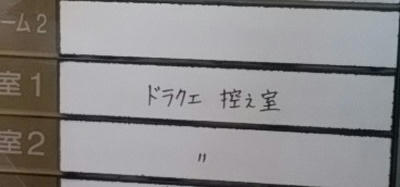 ーム2
室1 ドラクエ 控え室
室2 〃